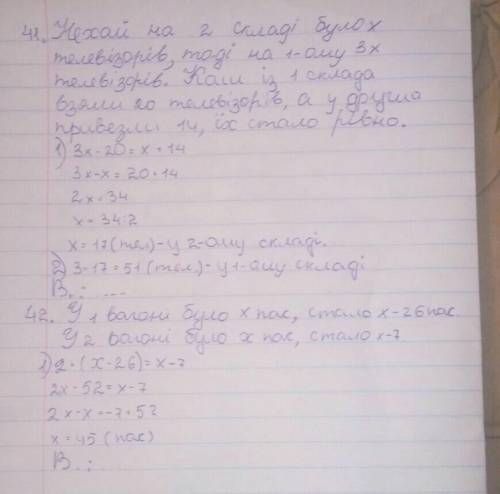 41. Нехай на 2 складі було х
телевізорів, тоді на 1-ому 3х
телевізорів. Коли із 1 склада
взяли 20 телевізорів, а у друга
привезли 14, їх стало рівно.
1) 3х-20=х+14
3х-х=20+14
2х=34
х=34:2
х=17(тел)-у 2-ому складі.
2) 3·17=51(тел.)-у 1-ому складі
В.: ....
42. У 1 вагоні було х пас, стало х-26 пас.
У 2 вагоні було х пас, стало х-7
1) 2·(х-26)=х-7
2х-52=х-7
2х-х=-7+52
х=45 (пас)
В.: